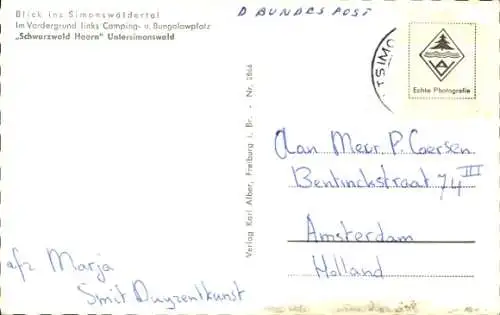 Blick ins Simonswäldertal
Im Vordergrund links Camping- u. Bungalowplatz
„Schwarzwald Hoorn" Untersimonswald
D BUNDESPOST
TSIMO
Echte Photografie
Verlag Karl Alber, Freiburg i. Br. - Nr. 2866
Aan Mevr P. Coersen
Bentinckstraat 74 III
Amsterdam
Holland
afz Marja
Smit Duyzentkunst